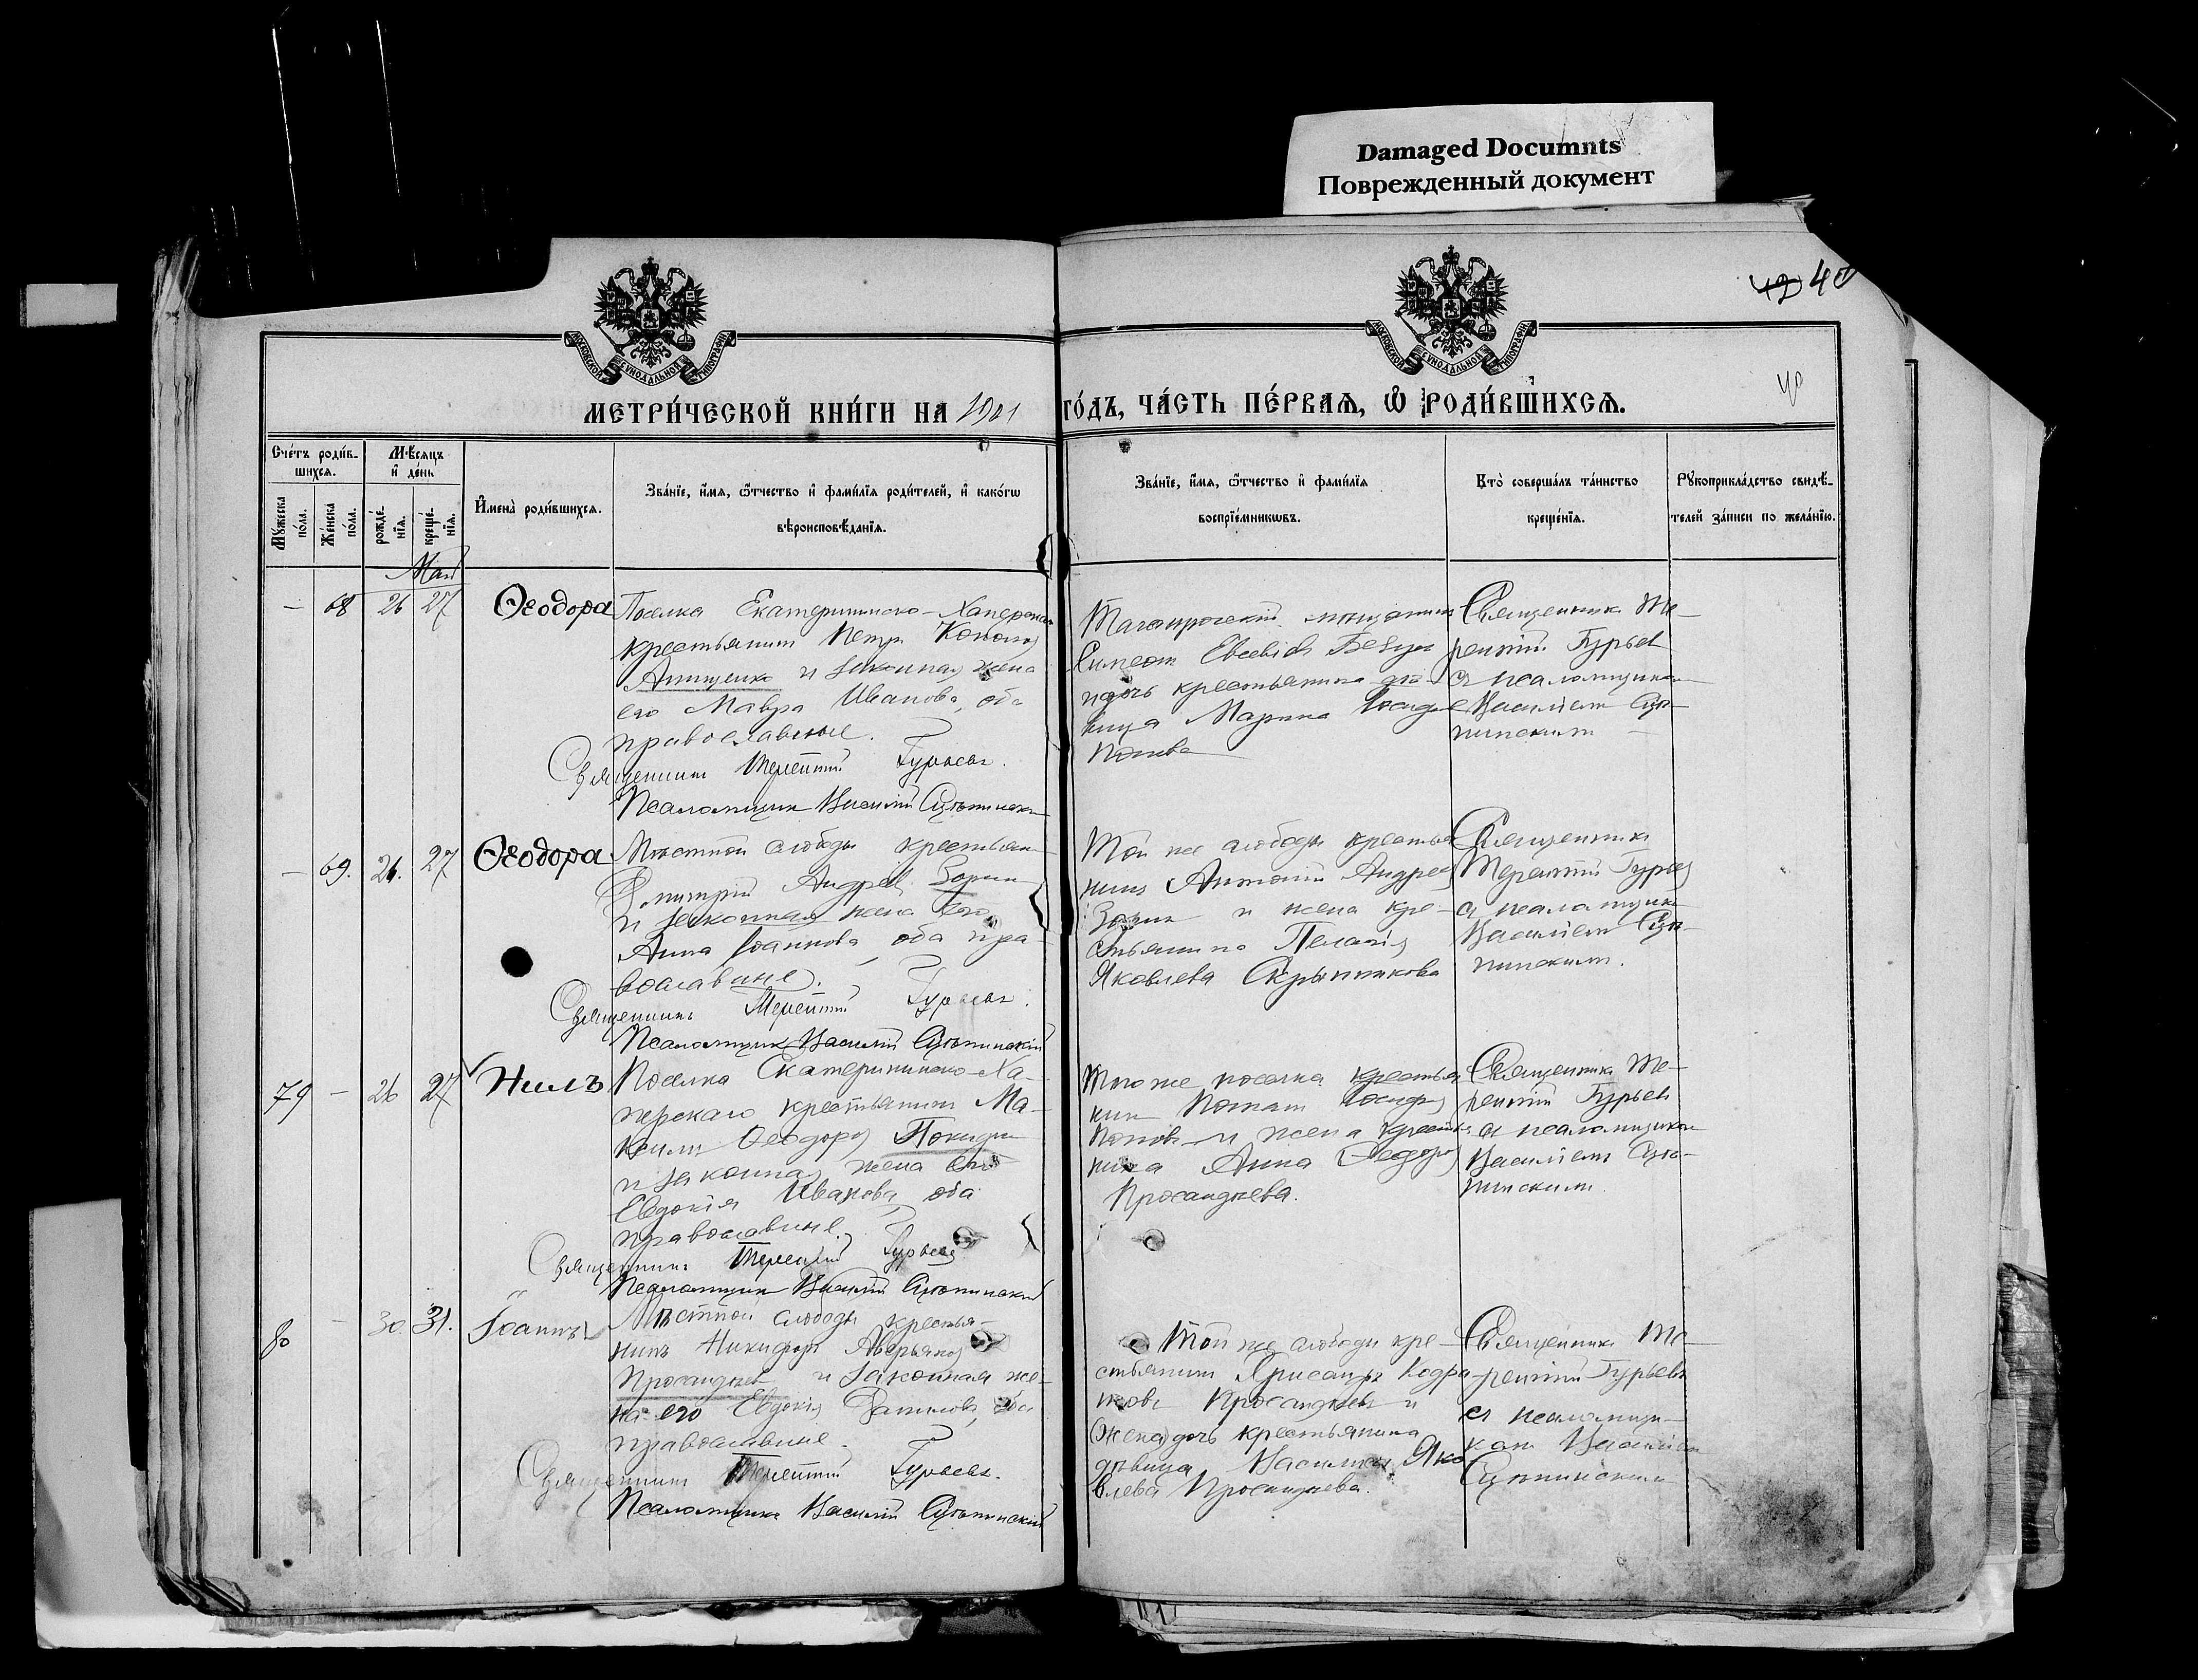 Damaged Documnts
Поврежденный документ
42 40
40
МОСКОВСКОЙ СѴНОДАЛЬНОЙ ТИПОГРАФІИ
МОСКОВСКОЙ СѴНОДАЛЬНОЙ ТИПОГРАФІИ
МЕТРИ́ЧЕСКОЙ КНИ́ГИ НА 1901 ГО́ДЪ, ЧА́СТЬ ПЕ́РВАѦ, Ѡ҆ РОДИ́ВШИХСѦ.
Сче́тъ роди́в-
шихсѧ.
Мꙋжеска по́ла.
Же́нска по́ла.
Мѣ́сѧцъ
и҆ де́нь
рожде́-
нїѧ.
креще́-
нїѧ.
И҆мена̀ роди́вшихсѧ.
Зва́нїе, и҆́мѧ, ѻ҆́тчество и҆ фами́лїѧ роди́телей, и҆ како́гѡ
вѣроисповѣ́данїѧ.
Зва́нїе, и҆́мѧ, ѻ҆́тчество и҆ фами́лїѧ
воспрїе́мникѡвъ.
Кто̀ соверша́лъ та́инство
креще́нїѧ.
Рꙋкоприкла́дство свидѣ́-
телей за́писи по жела́нїю.
Май
— 68 26 27 Ѳеодора
Поселка Екатерининско-Хаперскаго
крестьянинъ Петръ Кононов
Анищенко и законная жена
его Мавра Иванова, оба
православные.
Священникъ Терентій Гурьевъ.
Псаломщик Василій Сцепинскій
Таганрогскій мѣщанинъ
Симеон Евсевіев
и дочь крестьянина дѣ-
вица Марина
Попова
Священник Те-
рентій Гурьев
съ псаломщиком
Василіем Сце-
пинским
— 69. 26. 27 Ѳеодора
Мѣстной слободы крестьянин
Дмитрій Андреев Зорин
и законная жена его
Анна Іоаннова, оба пра-
вославные.
Священникъ Терентій Гурьевъ.
Псаломщик Василій Сцепинскій
Той же слободы крестья
нинъ Антоній Андреев
Зорин и жена кре-
стьянина Пелагія
Яковлева Скрыпникова
Священник
Терентій Гурьев
съ псаломщик
Василіем Сце-
пинским.
79 — 26 27 Нилъ
Поселка Екатерининско-Ха-
перскаго крестьянин Ма-
ксим Ѳеодоров Покидин
и законная жена его
Евдокія Иванова, оба
православные.
Священникъ Терентій Гурьев
Псаломщик Василій Сцепинскій
Того же поселка крестья
нин Потап
Попов и жена крестья
нина Анна Ѳеодоров
Просандеева.
Священник Те-
рентій Гурьев
съ псаломщиком
Василіем Сце-
пинским.
80 — 30 31. Іоаннъ
Мѣстной слободы крестья-
нинъ Никифор Аверьянов
Просандеев и законная же-
на его Евдокія Данилова, оба
православные.
Священникъ Терентій Гурьевъ.
Псаломщик Василій Сцепинскій
Той же слободы кре-
стьянин Хрисанф
Просандеев и
дочь крестьянина
дѣвица Яко
влева Просандеева.
Священник Те-
рентій Гурьевъ
съ псаломщи-
ком Василіем
Сцепинским